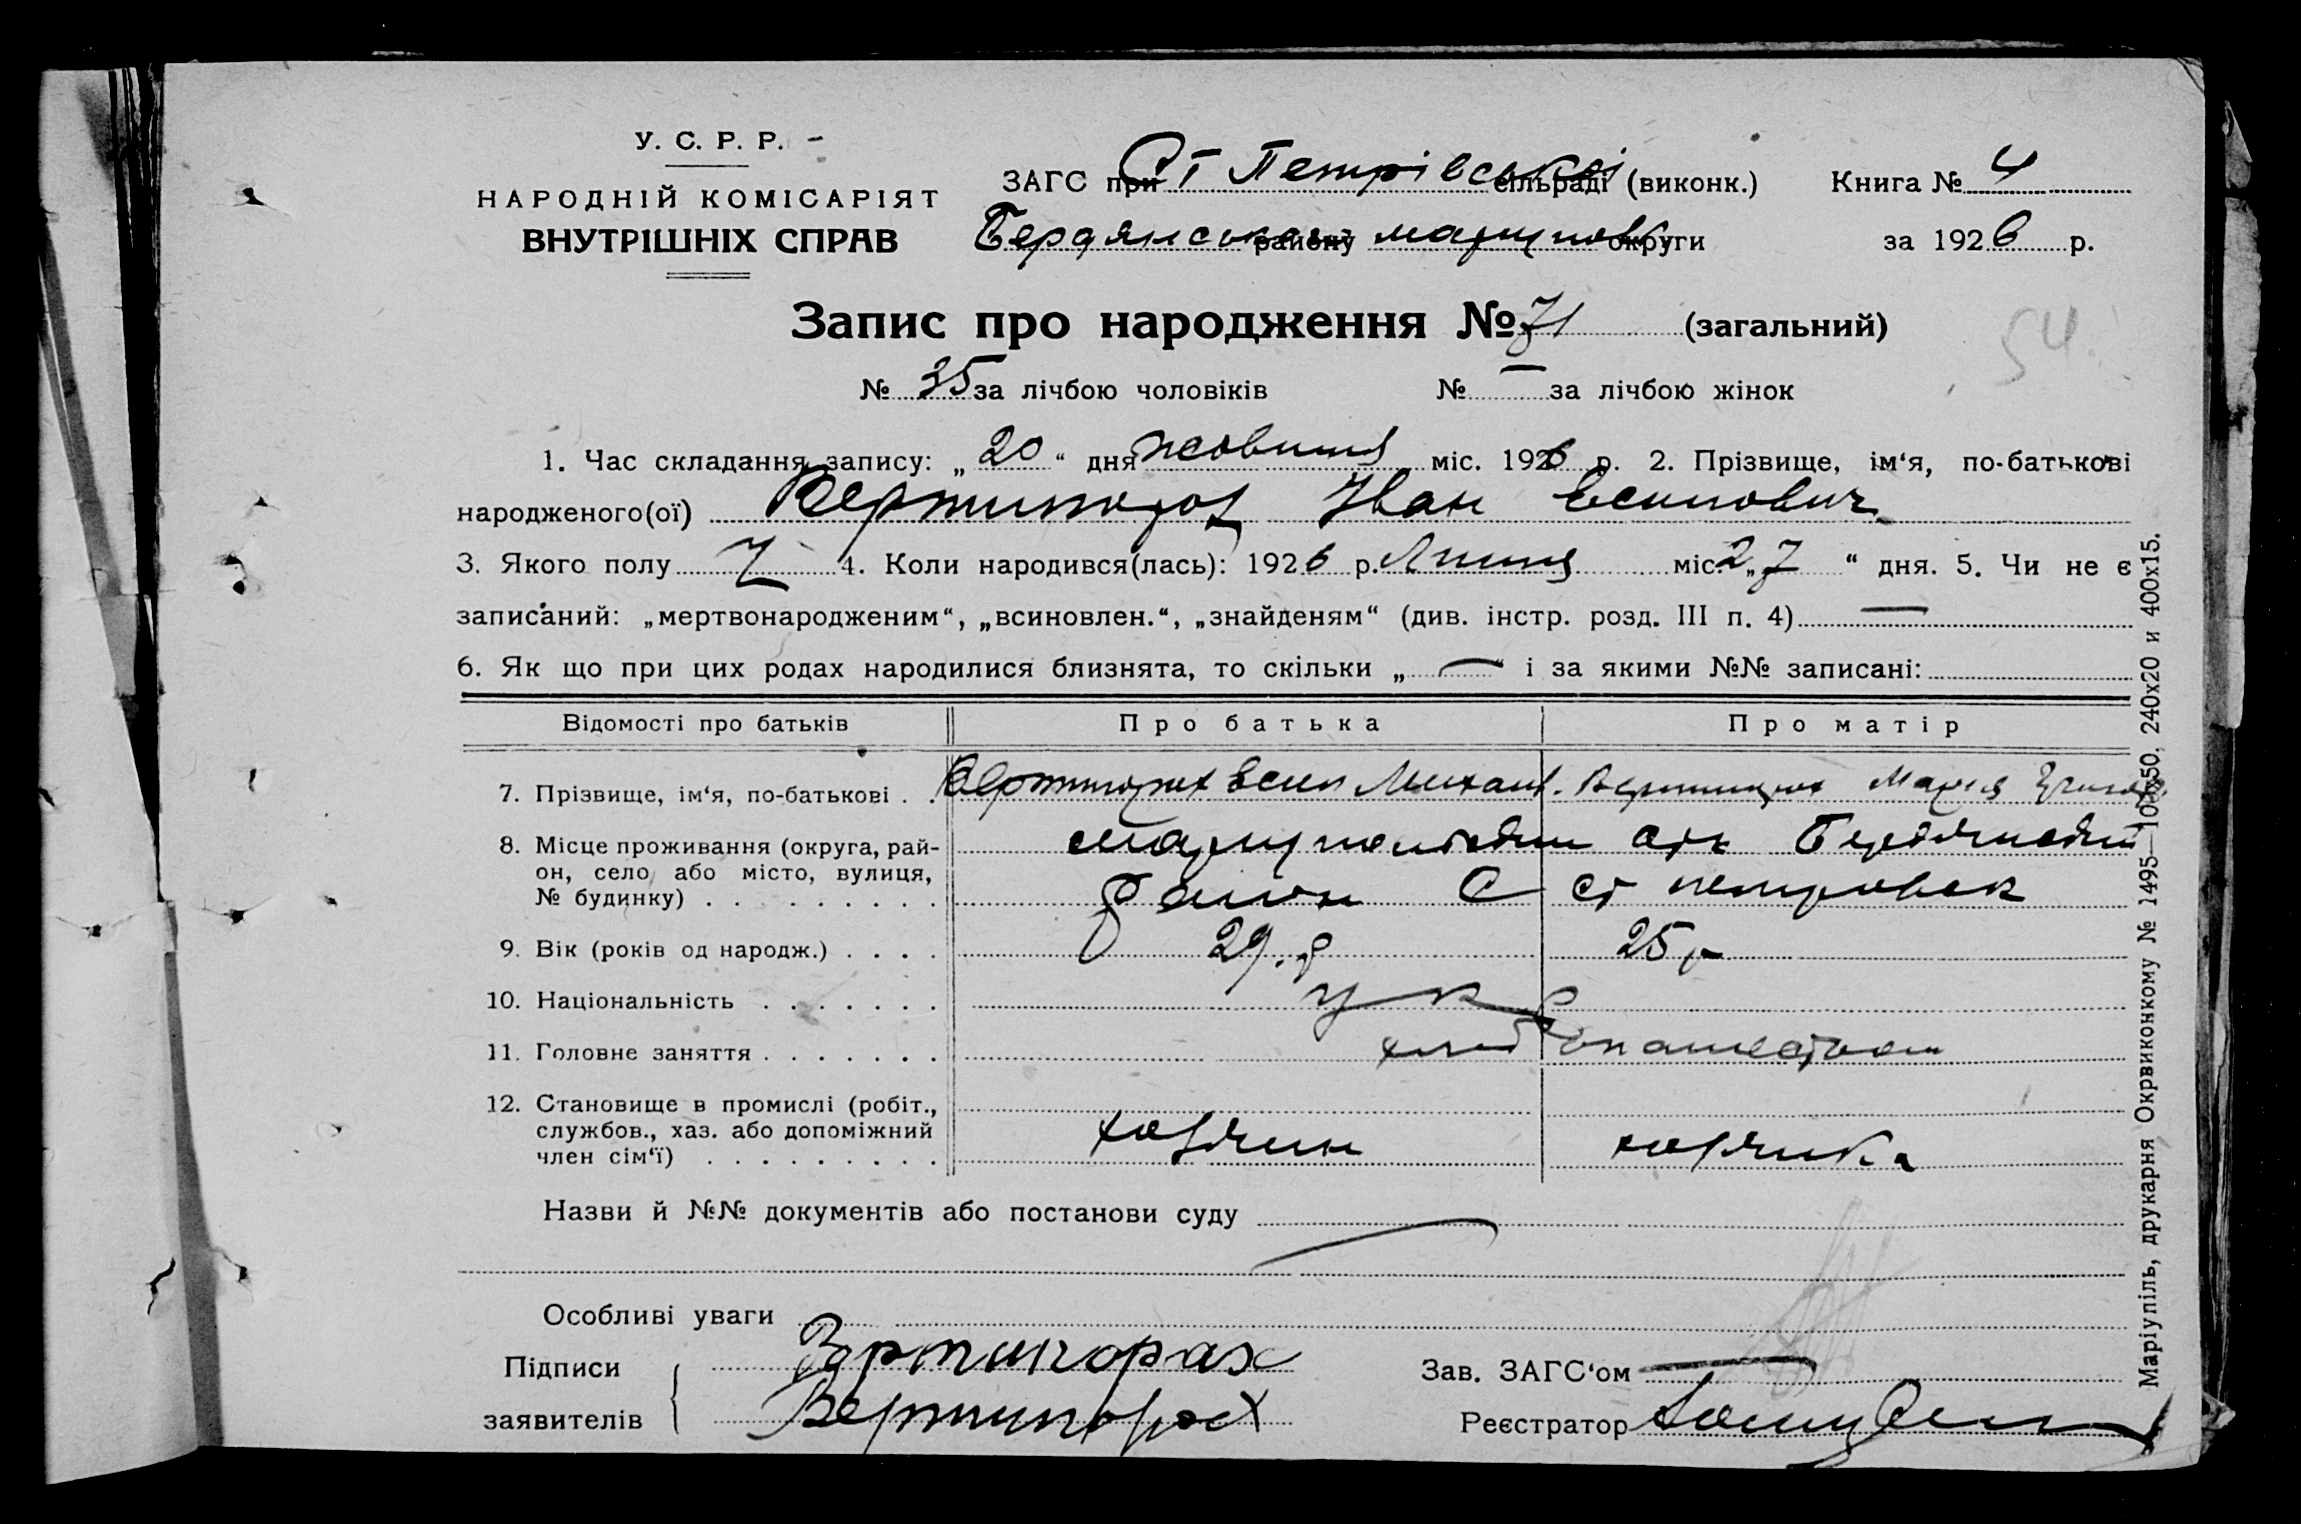 У. С. Р. Р.
НАРОДНІЙ КОМІСАРІЯТ
ВНУТРІШНІХ СПРАВ
ЗАГС при Ст Петрівській сільраді (виконк.) Книга № 4
Бердянського району маріупол округи за 1926 р.
Запис про народження № 71 (загальний)
54.
№ 35 за лічбою чоловіків № — за лічбою жінок
1. Час складання запису: „20“ дня жовтня міс. 1926 р. 2. Прізвище, ім‘я, по-батькові
народженого(ої) Вертипорох Іван Есипович
3. Якого полу Ч 4. Коли народився(лась): 1926 р. Липня міс. „27“ дня. 5. Чи не є
записаний: „мертвонародженим“, „всиновлен.“, „знайденям“ (див. інстр. розд. III п. 4) —
6. Як що при цих родах народилися близнята, то скільки „—“ і за якими №№ записані:
Відомості про батьків Про батька Про матір
7. Прізвище, ім‘я, по-батькові . . Вертипорох Есип Михаил. Вертипорох Мария
8. Місце проживання (округа, рай-
он, село або місто, вулиця,
№ будинку) . . . . . . . . .
Мариупольский окр Бердянский
район С Ст петровск
9. Вік (років од народж.) . . . . 29. р 25 р
10. Національність . . . . . . . укр
11. Головне заняття . . . . . . . хлебопашество
12. Становище в промислі (робіт.,
службов., хаз. або допоміжний
член сім‘ї) . . . . . . . . .
хозяин хозяйка
Назви й №№ документів або постанови суду
Особливі уваги
Підписи
заявителів
Вертипорах
Вертипорох
Зав. ЗАГС‘ом
Реєстратор
Маріупіль, друкарня Окрвиконкому № 1495—100х50, 240х20 и 400х15.